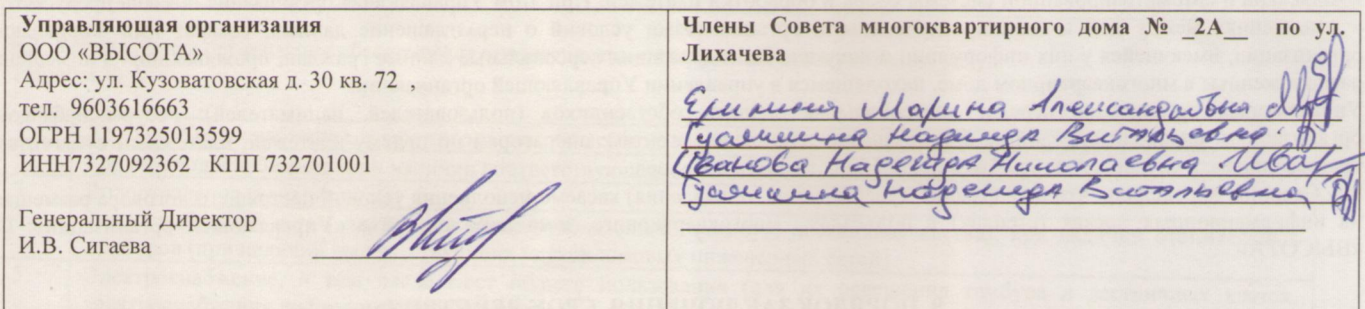 Управляющая организация
ООО «ВЫСОТА»
Адрес: ул. Кузоватовская д. 30 кв. 72 ,
тел. 9603616663
ОГРН 1197325013599
ИНН7327092362 КПП 732701001
Генеральный Директор
И.В. Сигаева
Члены Совета многоквартирного дома № _2А___ по ул.
Лихачева
Марина Александровна
Надежда Витальевна
Иванова Надежда Николаевна Ива
Надежда Витальевна